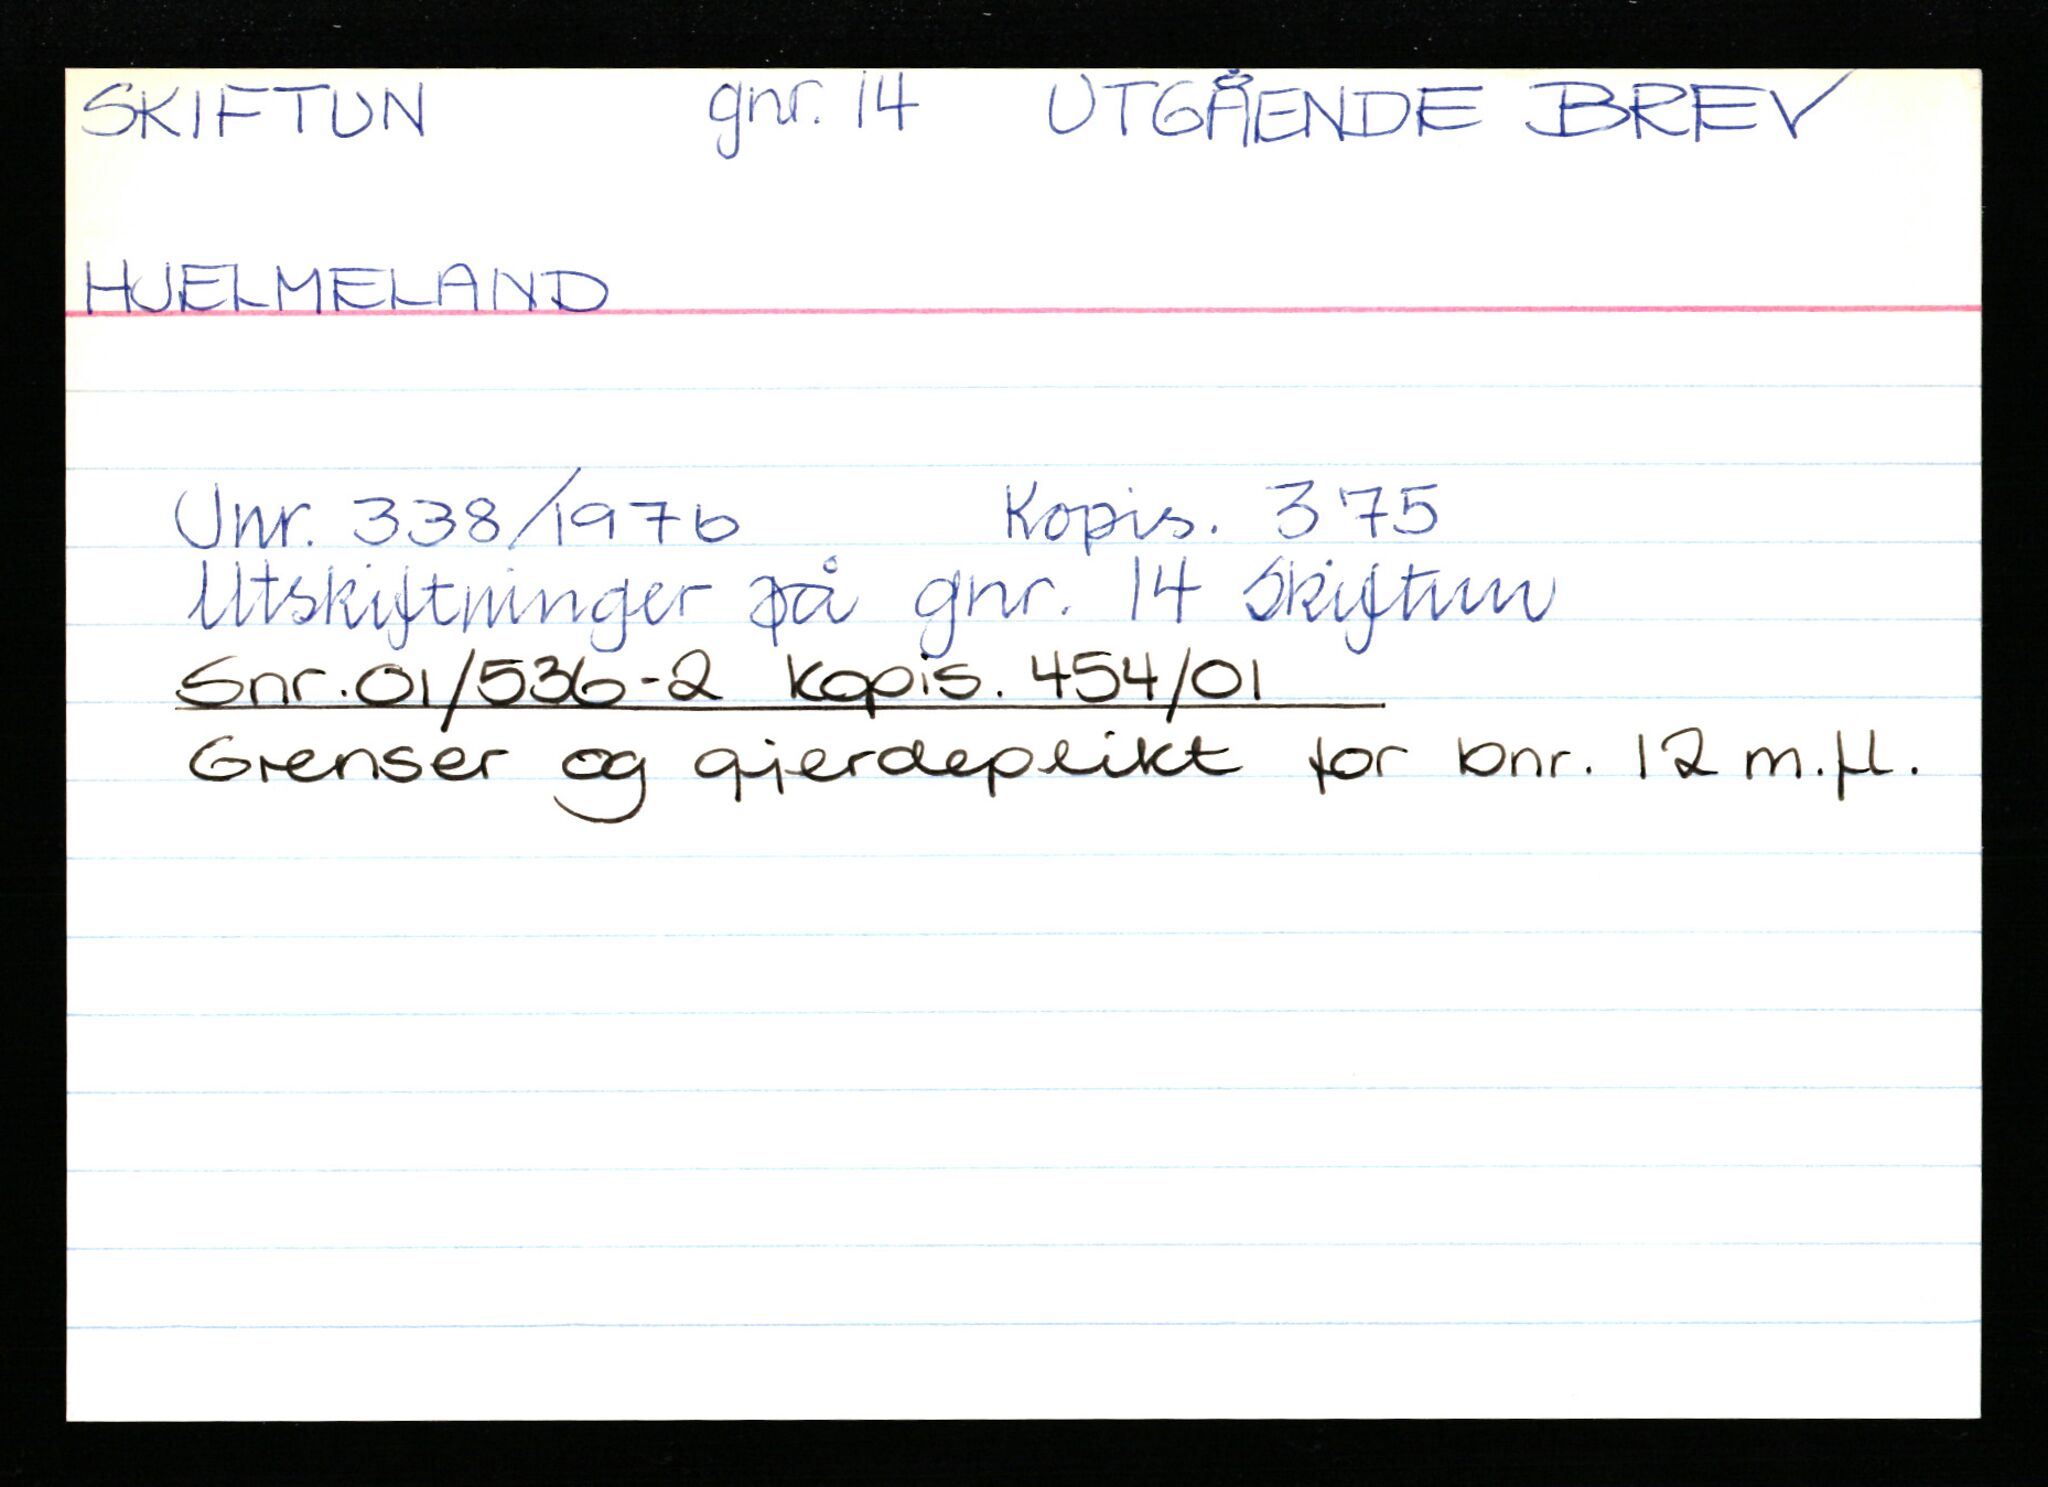 SKIFTUN gnr. 14 UTGÅENDE BREV
HJELMELAND
Unr. 338/1976 Kopis. 375
Utskiftninger på gnr. 14 Skiftun
Snr. 01/536-2 Kopis. 454/01
Grenser og gjerdeplikt for bnr. 12 m.fl.